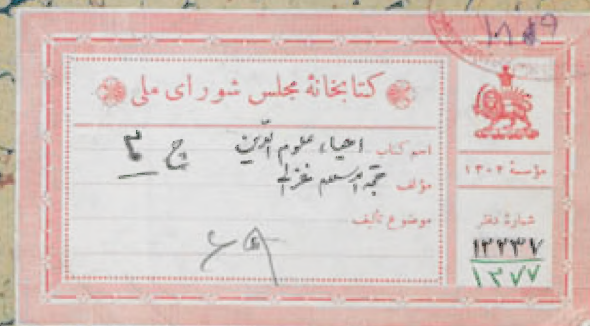 کتابخانهٔ مجلس شورای ملی
اسم کتاب احیاء علوم الدین ج ۳
مؤلف حجة الاسلام غزالی
موضوع تألیف
مؤسسهٔ ۱۳۰۲
شمارهٔ دفتر
۱۲۲۳۷
۱۲۷۷